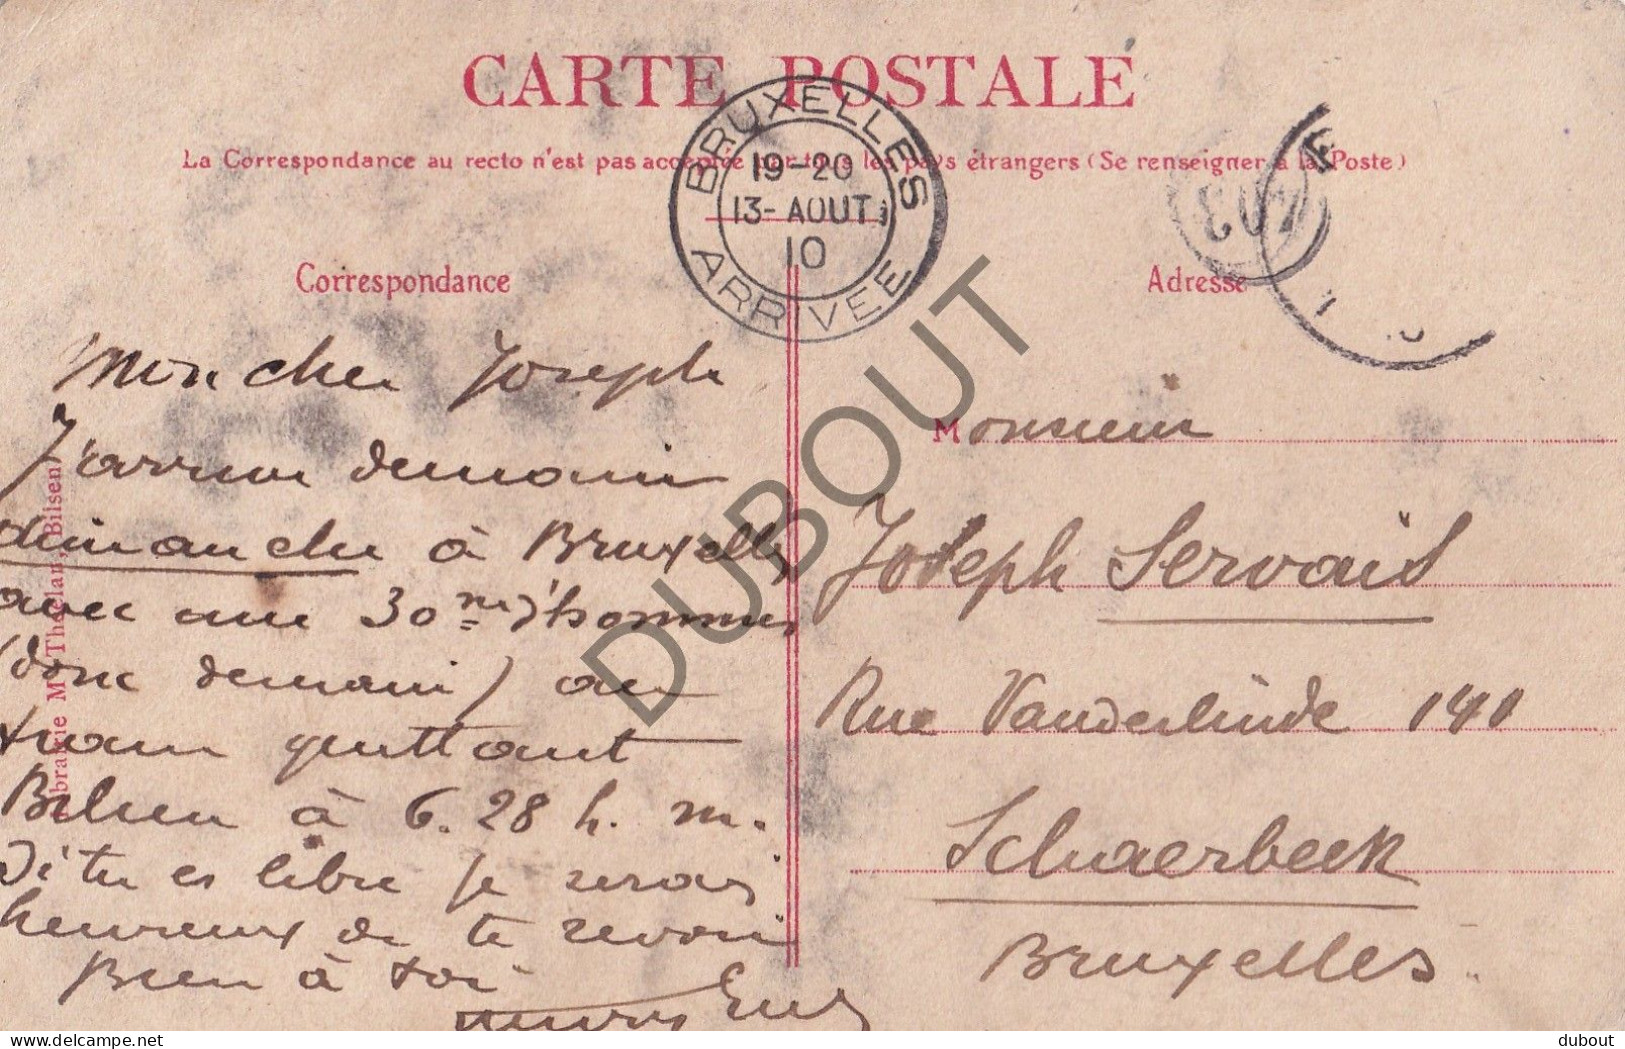 CARTE POSTALE
La Correspondance au recto n'est pas acceptée par tous les pays étrangers (Se renseigner à la Poste)
BRUXELLES
19-20
13-AOUT
10
ARRIVEE
Correspondance
Mon cher Joseph
J'arrive demain
dimanche à Bruxelles
avec une 30ne d'hommes
(donc demain) au
train quittant
Bilsen à 6.28 h. m.
Si tu es libre je serais
heureux de te revoir
Bien à toi
Librairie M Theelan, Bilsen
Adresse
Monsieur
Joseph Servais
Rue Vanderlinde 141
Schaerbeek
Bruxelles.
DUBOUT
delcampe.net
dubout